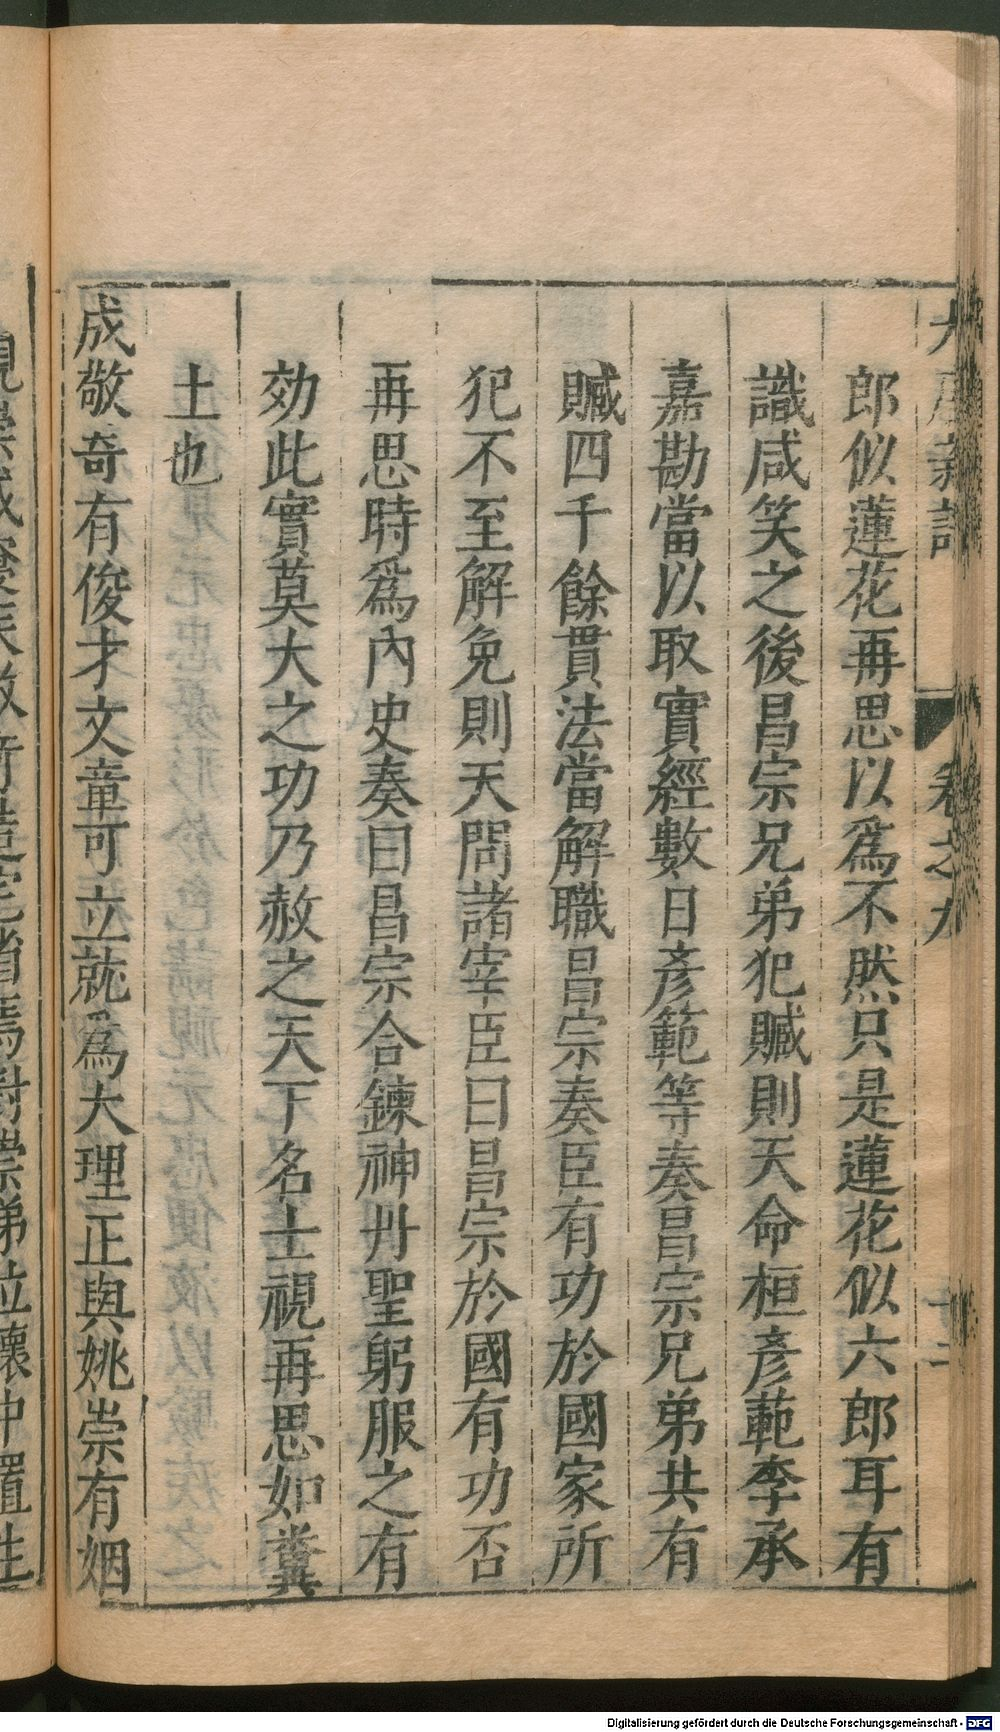 大唐新語 卷之九 十二
郎似蓮花再思以爲不然只是蓮花似六郎耳有
識咸笑之後昌宗兄弟犯贓則天命桓彥範李承
嘉勘當以取實經數日彥範等奏昌宗兄弟共有
贓四千餘貫法當解職昌宗奏臣有功於國家所
犯不至解免則天問諸宰臣曰昌宗於國有功否
再思時爲內史奏曰昌宗合鍊神丹聖躬服之有
効此實莫大之功乃赦之天下名士視再思如糞
土也
成敬奇有俊才文章可立就爲大理正與姚崇有姻
Digitalisierung gefördert durch die Deutsche Forschungsgemeinschaft - DFG